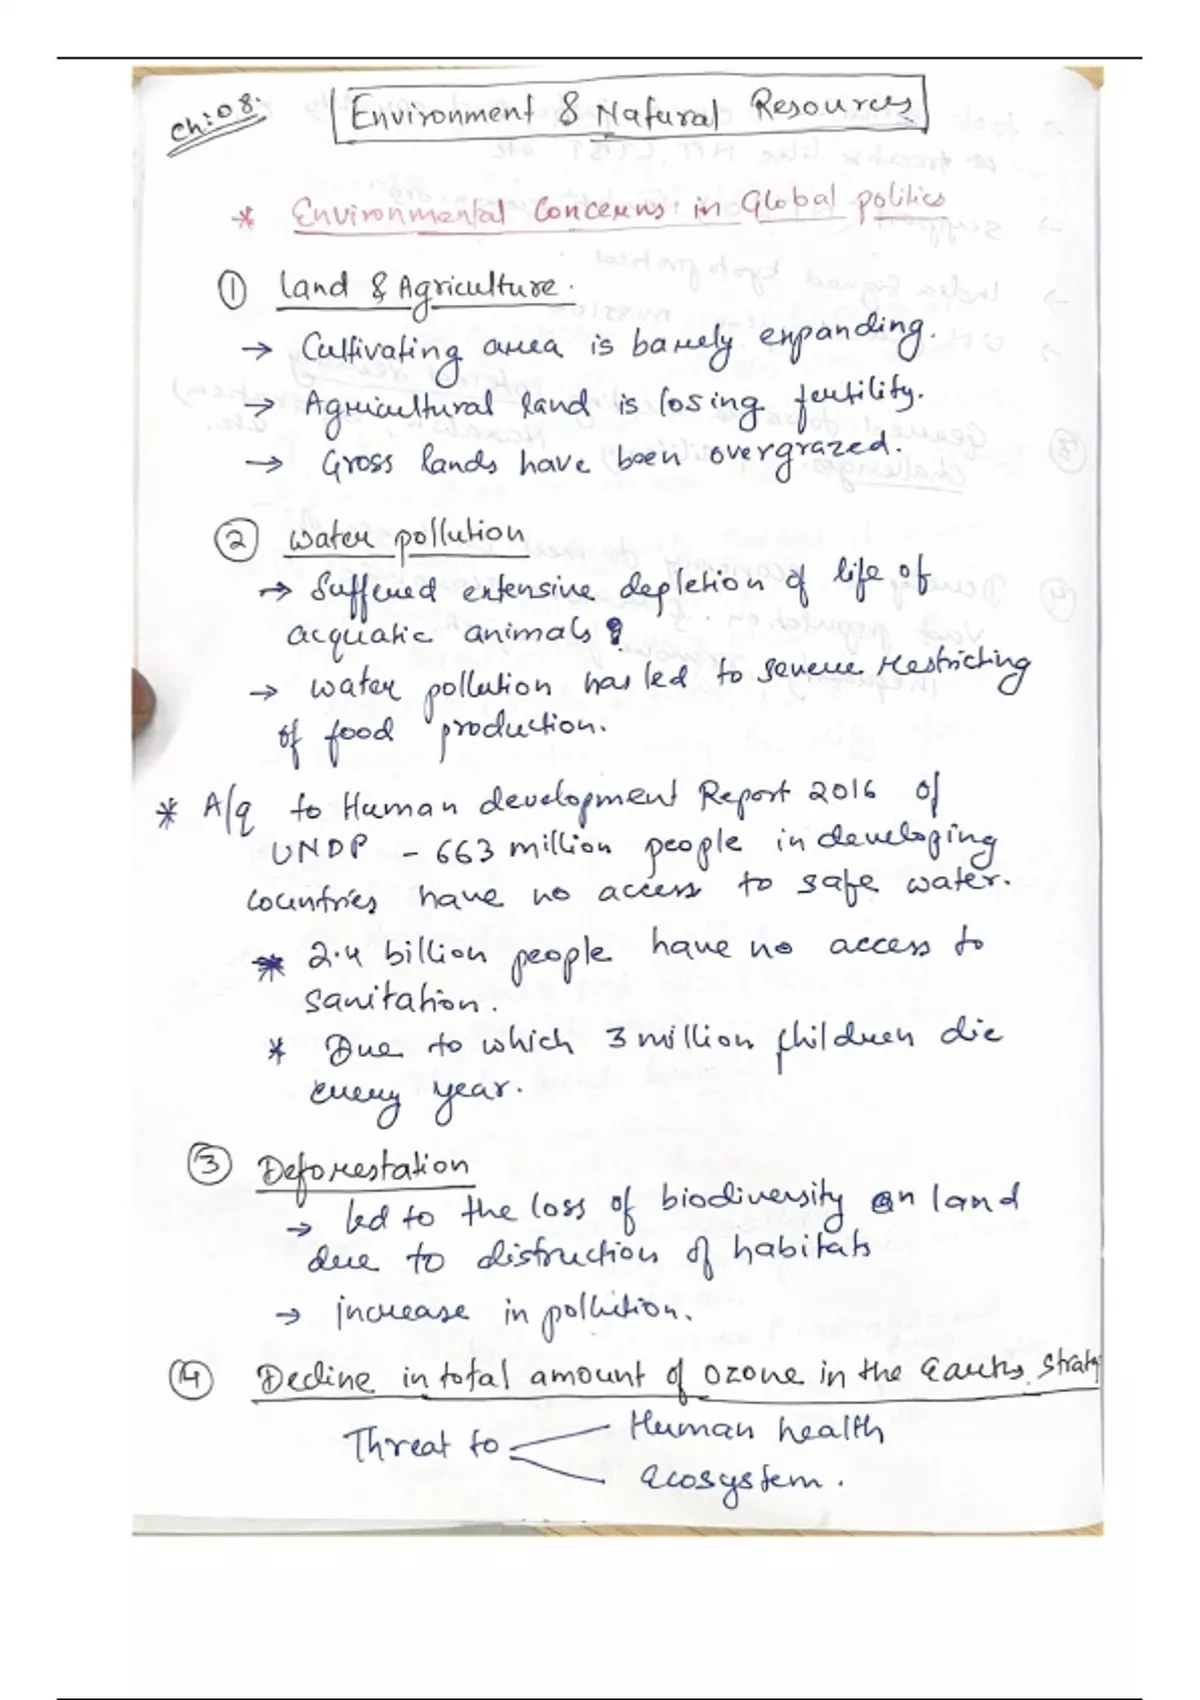 Ch:08.
Environment & Natural Resources
* Environmental Concerns in Global politics
① Land & Agriculture.
→ Cultivating area is barely expanding.
→ Agricultural land is losing fertility.
→ Gross lands have been overgrazed.
② Water pollution
→ Suffered extensive depletion of life of
acquatic animals
→ Water pollution has led to severe restricting
of food production.
* A/q to Human development Report 2016 of
UNDP - 663 million people in developing
countries have no access to safe water.
* 2.4 billion people have no access to
sanitation.
* Due to which 3 million children die
every year.
③ Deforestation
→ led to the loss of biodiversity on land
due to distruction of habitats
→ increase in pollution.
④ Decline in total amount of ozone in the Earths Strat
Threat to Human health
Ecosystem.